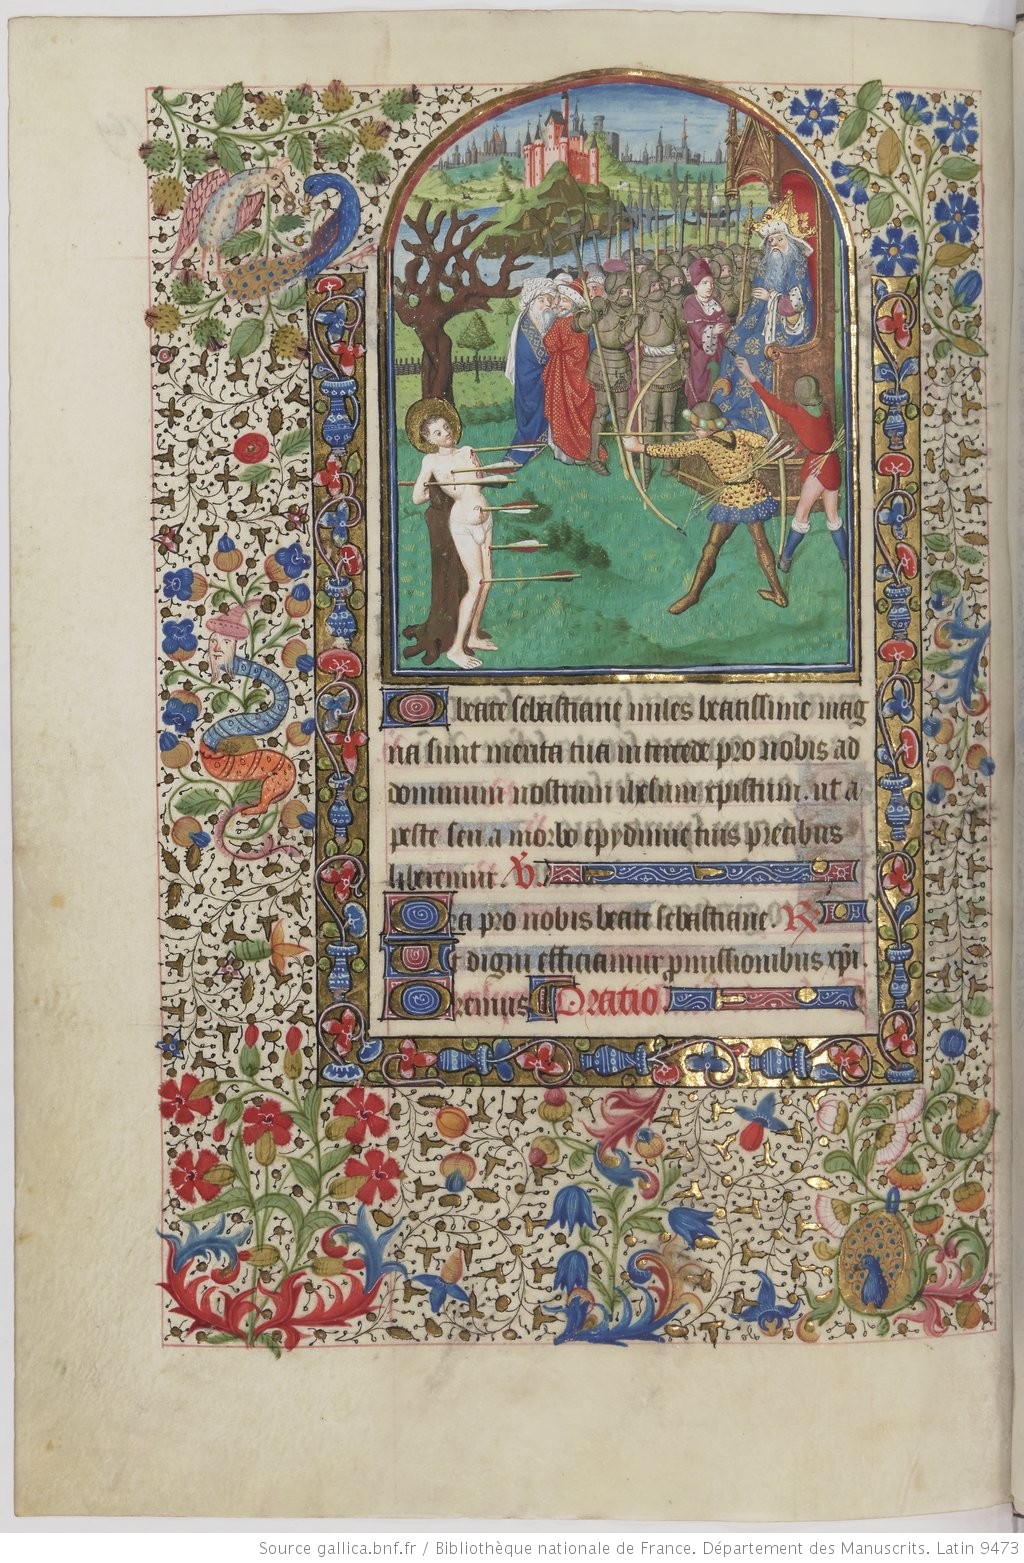 O beate sebastiane miles beatissime mag
na sunt merita tua intercede pro nobis ad
dominum nostrum ihesum xpistum. ut a
peste seu a morbo epydimie tuis precibus
liberemur. V.
Ora pro nobis beate sebastiane. R
Et digni efficiamur promissionibus xpi.
Oremus Oratio
Source gallica.bnf.fr / Bibliothèque nationale de France. Département des Manuscrits. Latin 9473